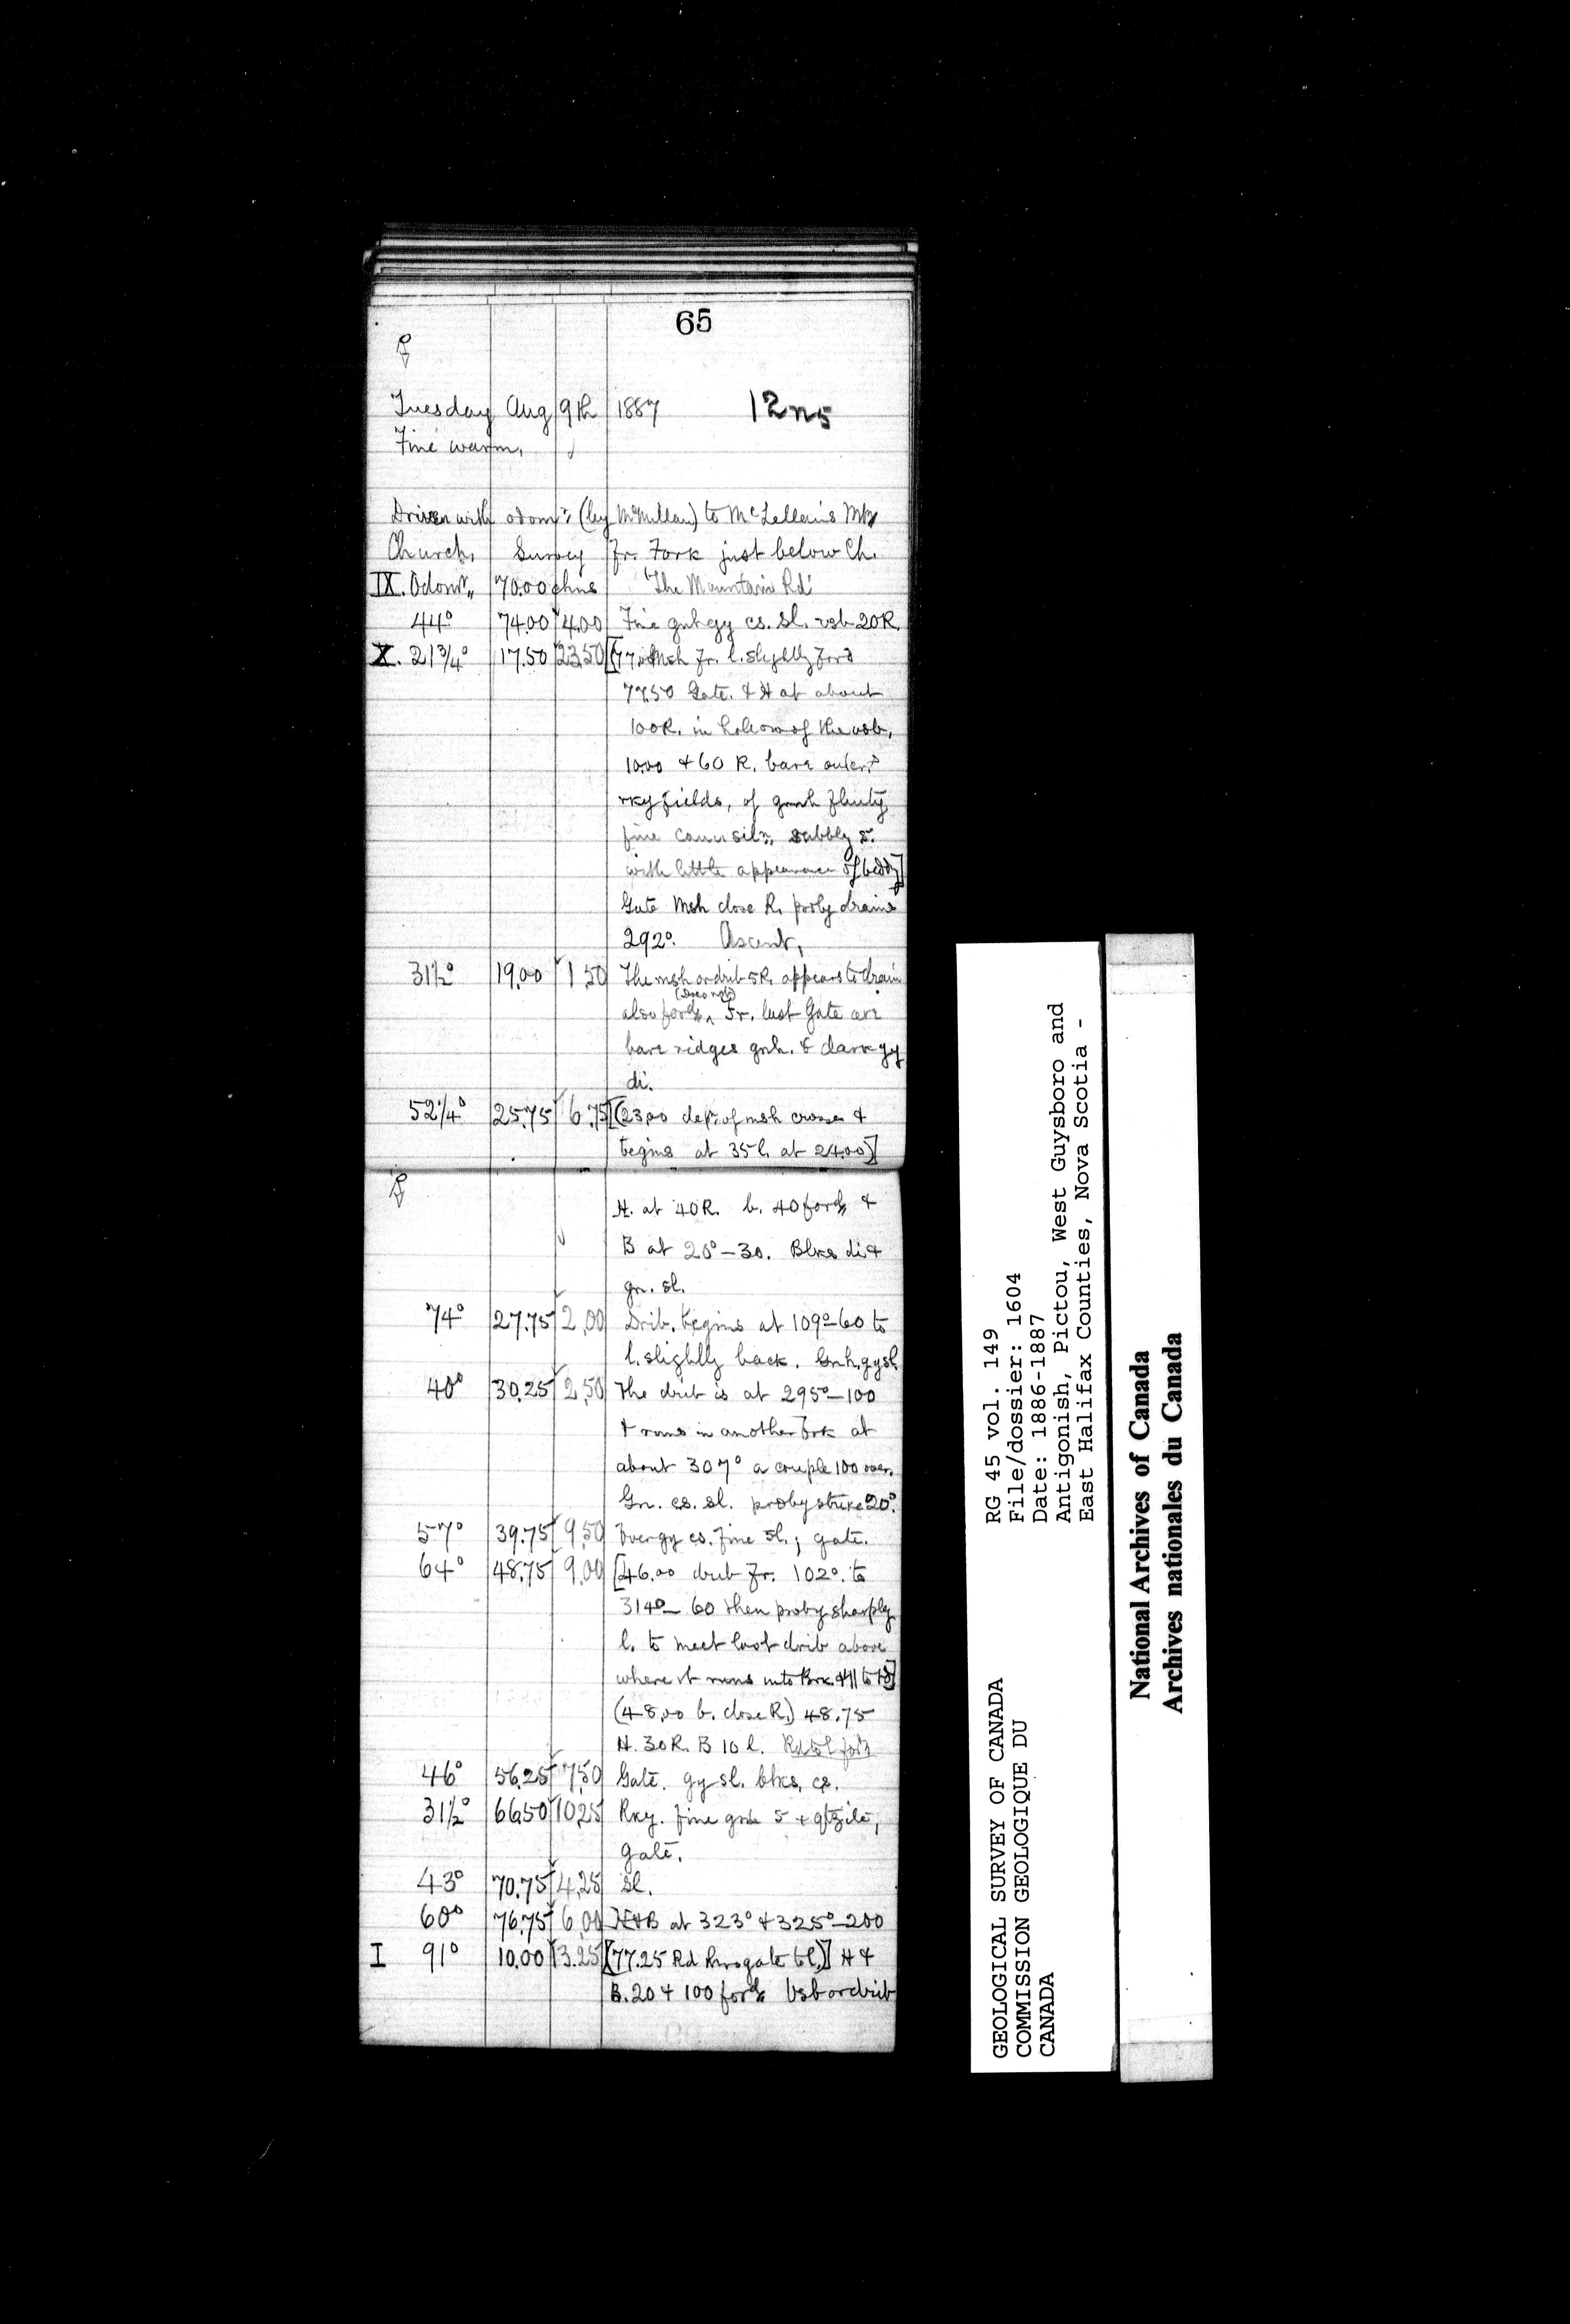 65
Tuesday Aug 9th 1887 12n5
Fine warm.
Driven with odomr. (by McMillan) to McLellan's Mtn
Church. Survey fr. Fork just below Ch.
IX. Odomr. 70.00 chns 'The Mountain Rd'
44° 74.00 4.00 Fine gnh gy cs. sl. vsb 20R.
X. 21 3/4° 17.50 23.50 [(77. Msh fr. l. slightly ford
77.50 Gate. & H at about
100R. in hollow of the vsb.
10.00 & 60 R. bare outcr.
rky fields, of gnh flinty
fine silr. s.
with little appearance of beddg]
Gate Msh close R. proby drains
292°. Ascent.
31 1/2° 19.00 1.50 The msh or drib 5R. appears to drain
(does not)
also ford. Fr. last Gate are
bare ridges gnh. & dark gy
di.
52 1/4° 25.75 6.75 [(23.00 depr. of msh crosses &
begins at 35 l. at 24.00)]
H. at 40R. b. 40 ford. &
B at 20°-30. Blks di &
gn. sl.
74° 27.75 2.00 Drib. begins at 109°-60 to
l. slightly back. Gnh. gy sl.
40° 30.25 2.50 The drib is at 295°-100
& runs in another brk at
about 307° a couple 100 over.
Gn. cs. sl. proby strike 20°.
57° 39.75 9.50 gy cs. fine sl.; gate.
64° 48.75 9.00 [46.00 drib fr. 102°. to
314°-60 then proby sharply
l. to meet last drib above
where it runs into Brk & || to Rd]
(48.00 b. close R.) 48.75
H. 30R. B 10 l. Rd to l ford
46° 56.25 7.50 Gate. gy sl. blks. cs.
31 1/2° 66.50 10.25 Rky. fine gnh s & qtzite,
gate.
43° 70.75 4.25 sl.
60° 76.75 6.00 H & B at 323° & 325°-200
I 91° 10.00 13.25 [77.25 Rd thro gate to l.)] H &
B. 20 & 100 ford. Vsb or drib
GEOLOGICAL SURVEY OF CANADA
COMMISSION GEOLOGIQUE DU
CANADA
RG 45 vol. 149
File/dossier: 1604
Date: 1886-1887
Antigonish, Pictou, West Guysboro and
East Halifax Counties, Nova Scotia -
National Archives of Canada
Archives nationales du Canada